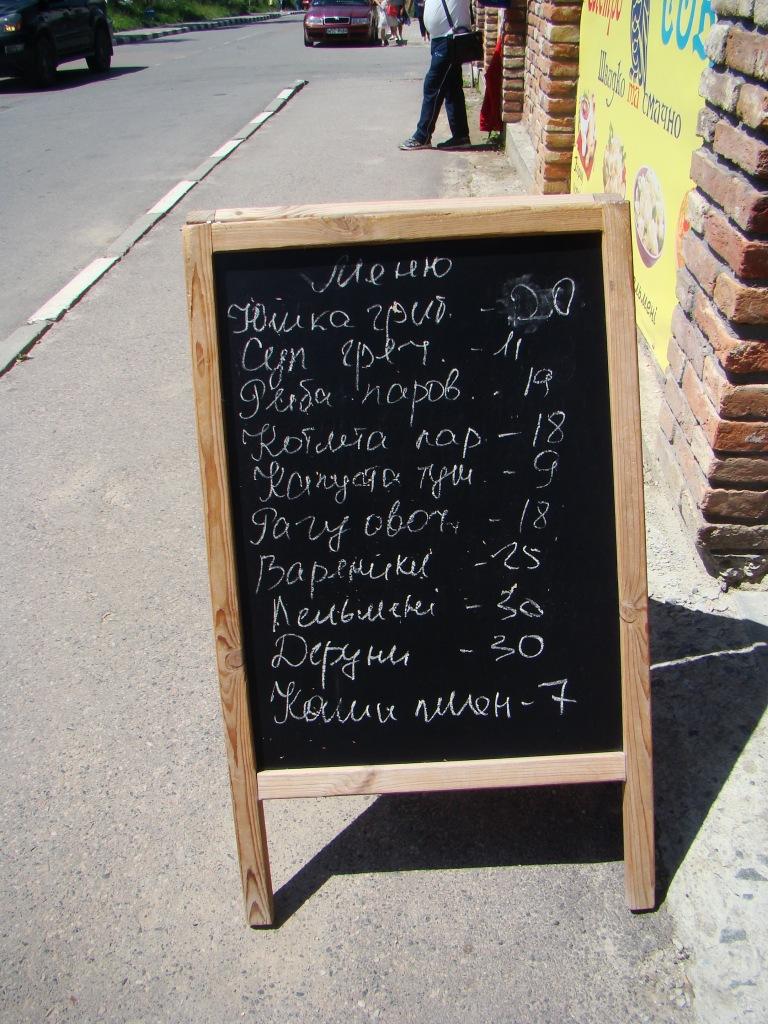 Швидко та смачно
Меню
Юшка гриб. - 20
Суп греч. - 11
Риба паров. - 19
Котлета пар - 18
Капуста туш - 9
Рагу овоч. - 18
Вареники - 25
Пельмені - 30
Деруни - 30
Каши пшон - 7